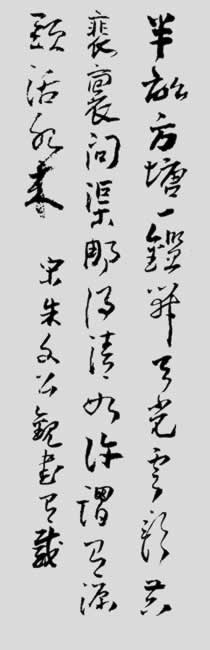 半畝方塘一鑑開天光雲影共
裴問渠那得清如許謂有源
頭活水來 宋朱文公觀書有感